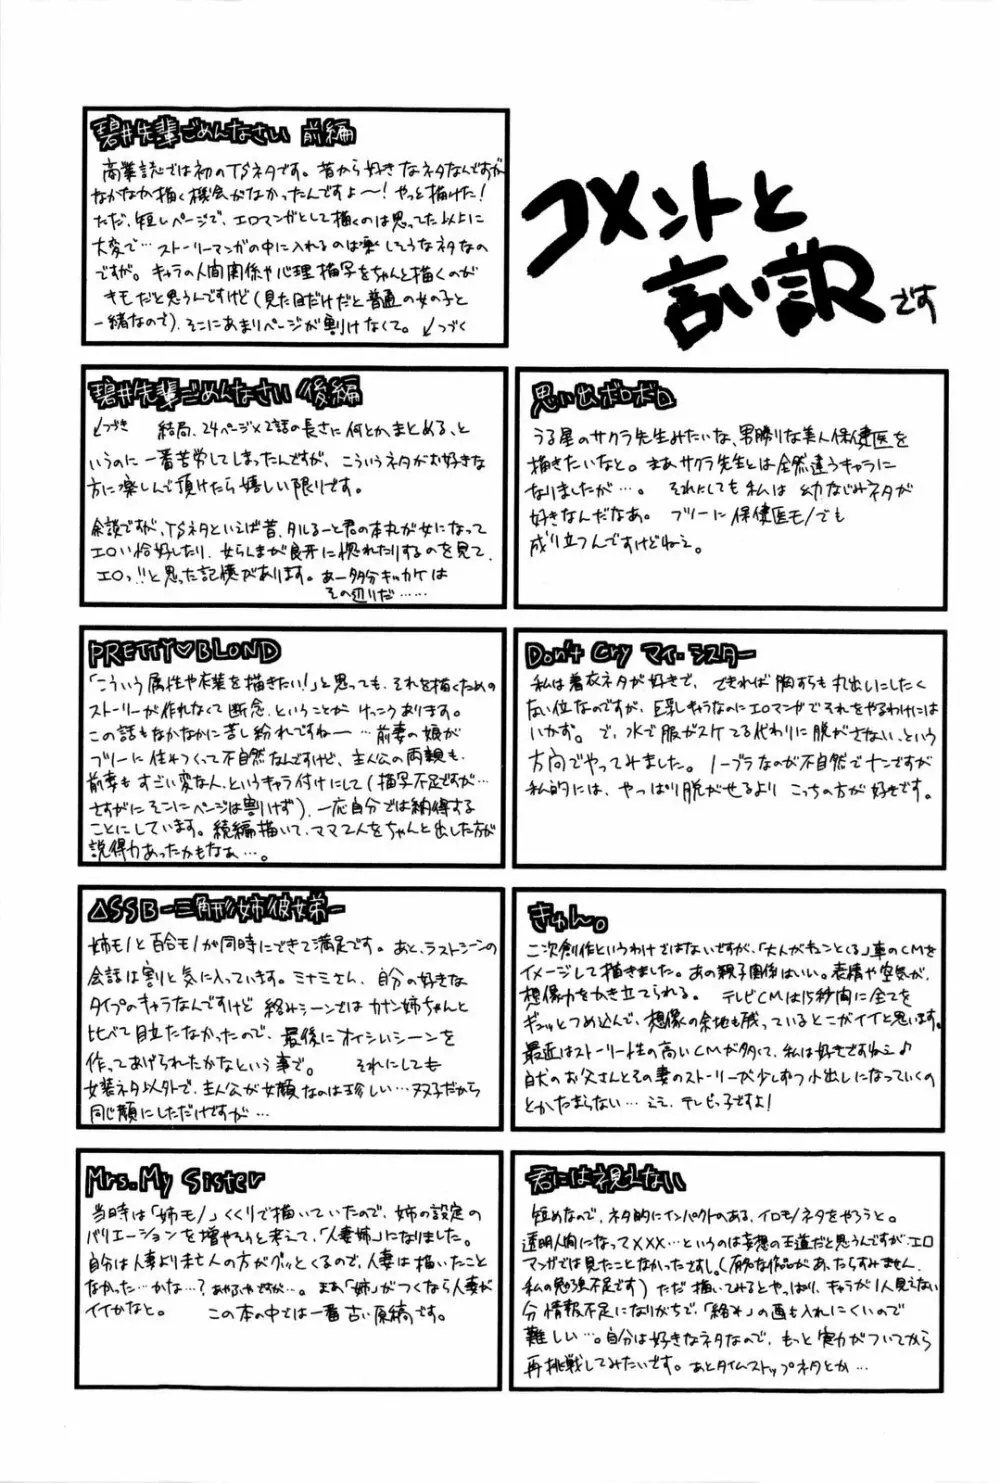 コメントと
言い訳です
碧井先輩ごめんなさい 前編
商業誌では初のTSネタです。昔から好きなネタなんですが
なかなか描く機会がなかったんですよ〜!やっと描けた!
ただ、短いページで、エロマンガとして描くのは思ってた以上に
大変で…ストーリーマンガの中に入れるのは楽しそうなネタなの
ですが。キャラの人間関係や心理描写をちゃんと描くのが
キモだと思うんですけど(見た目だけだと普通の女の子と
一緒なので)、そこにあまりページが割けなくて。↙つづく
碧井先輩ごめんなさい 後編
↘つづき 結局、24ページ×2話の長さに何とかまとめる、と
いうのに一番苦労してしまったんですが、こういうネタがお好きな
方に楽しんで頂けたら嬉しい限りです。
余談ですが、TSネタといえば昔、タルるート君の本丸が女になって
エロい恰好したり、女らんまが良牙に惚れたりするのを見て、
エロっ!!と思った記憶があります。あー多分キッカケは
その辺りだ……
思い出ボロボロ
うる星のサクラ先生みたいな、男勝りな美人保健医を
描きたいなと。まあサクラ先生とは全然違うキャラに
なりましたが…。 それにしても私は幼なじみネタが
好きなんだなあ。 フツーに保健医モノでも
成り立つんですけどねェ。
PRETTY♥BLOND
「こういう属性や衣装を描きたい!」と思っても、それを描くための
ストーリーが作れなくて断念、ということがけっこうあります。
この話もなかなかに苦し紛れですねー…前妻の娘が
フツーに住みつくって不自然なんですけど、主人公の両親も、
前妻もすごい変な人、というキャラ付けにして(描写不足ですが…
さすがにそこにページは割けず)、一応自分では納得する
ことにしています。続編描いて、ママ2人をちゃんと出した方が
説得力あったかもなぁ…。
Don't Cry マイ・シスター
私は着衣ネタが好きで、できれば胸すらも丸出しにしたく
ない位なのですが、巨乳キャラなのにエロマンガでそれをやるわけには
いかず。で、水で服がスケてる代わりに脱がさない、という
方向でやってみました。ノーブラなのが不自然でナンですが
私的には、やっぱり脱がせるよりこっちの方が好きです。
△SSB-三角形姉彼女弟-
姉モノと百合モノが同時にできて満足です。あと、ラストシーンの
会話は割と気に入っています。ミナミさん、自分の好きな
タイプのキャラなんですけど絡みシーンではカナン姉ちゃんと
比べて目立たなかったので、最後にオイシいシーンを
作ってあげられたかなという事で。 それにしても
女装ネタ以外で、主人公が女顔なのは珍しい…双子だから
同じ顔にしただけですが…
きゅん。
二次創作というわけではないですが、「大人がきゅんとくる」車のCMを
イメージして描きました。あの親子関係はいい。表情や空気が、
想像力をかき立てられる。 テレビCMは15秒間に全てを
ギュッとつめ込んで、想像の余地も残っているとこがイイと思います。
最近はストーリー性の高いCMが多くて、私は好きですねェ♪
白犬のお父さんとその妻のストーリーが少しずつ小出しになっていくの
とかたまらない…ええ、テレビっ子ですよ!
Mrs. My Sister
当時は「姉モノ」くくりで描いていたので、姉の設定の
バリエーションを増やそうと考えて、「人妻姉」になりました。
自分は人妻より未亡人の方がグッとくるので、人妻は描いたこと
なかった…かな…?あやふやですが…。まあ「姉」がつくなら人妻が
イイかなと。 この本の中では一番古い原稿です。
君には視えない
短めなので、ネタ的にインパクトのある、イロモノネタをやろうと。
透明人間になって×××…というのは妄想の王道だと思うんですが、エロ
マンガでは見たことなかったですし。(有名な作品があったらすみません、
私の勉強不足です) ただ描いてみるとやっぱり、キャラが1人見えない
分情報不足になりがちで、「絡み」の画も入れにくいので
難しい…。自分は好きなネタなので、もっと実力がついてから
再挑戦してみたいです。あとタイムストップネタとか…